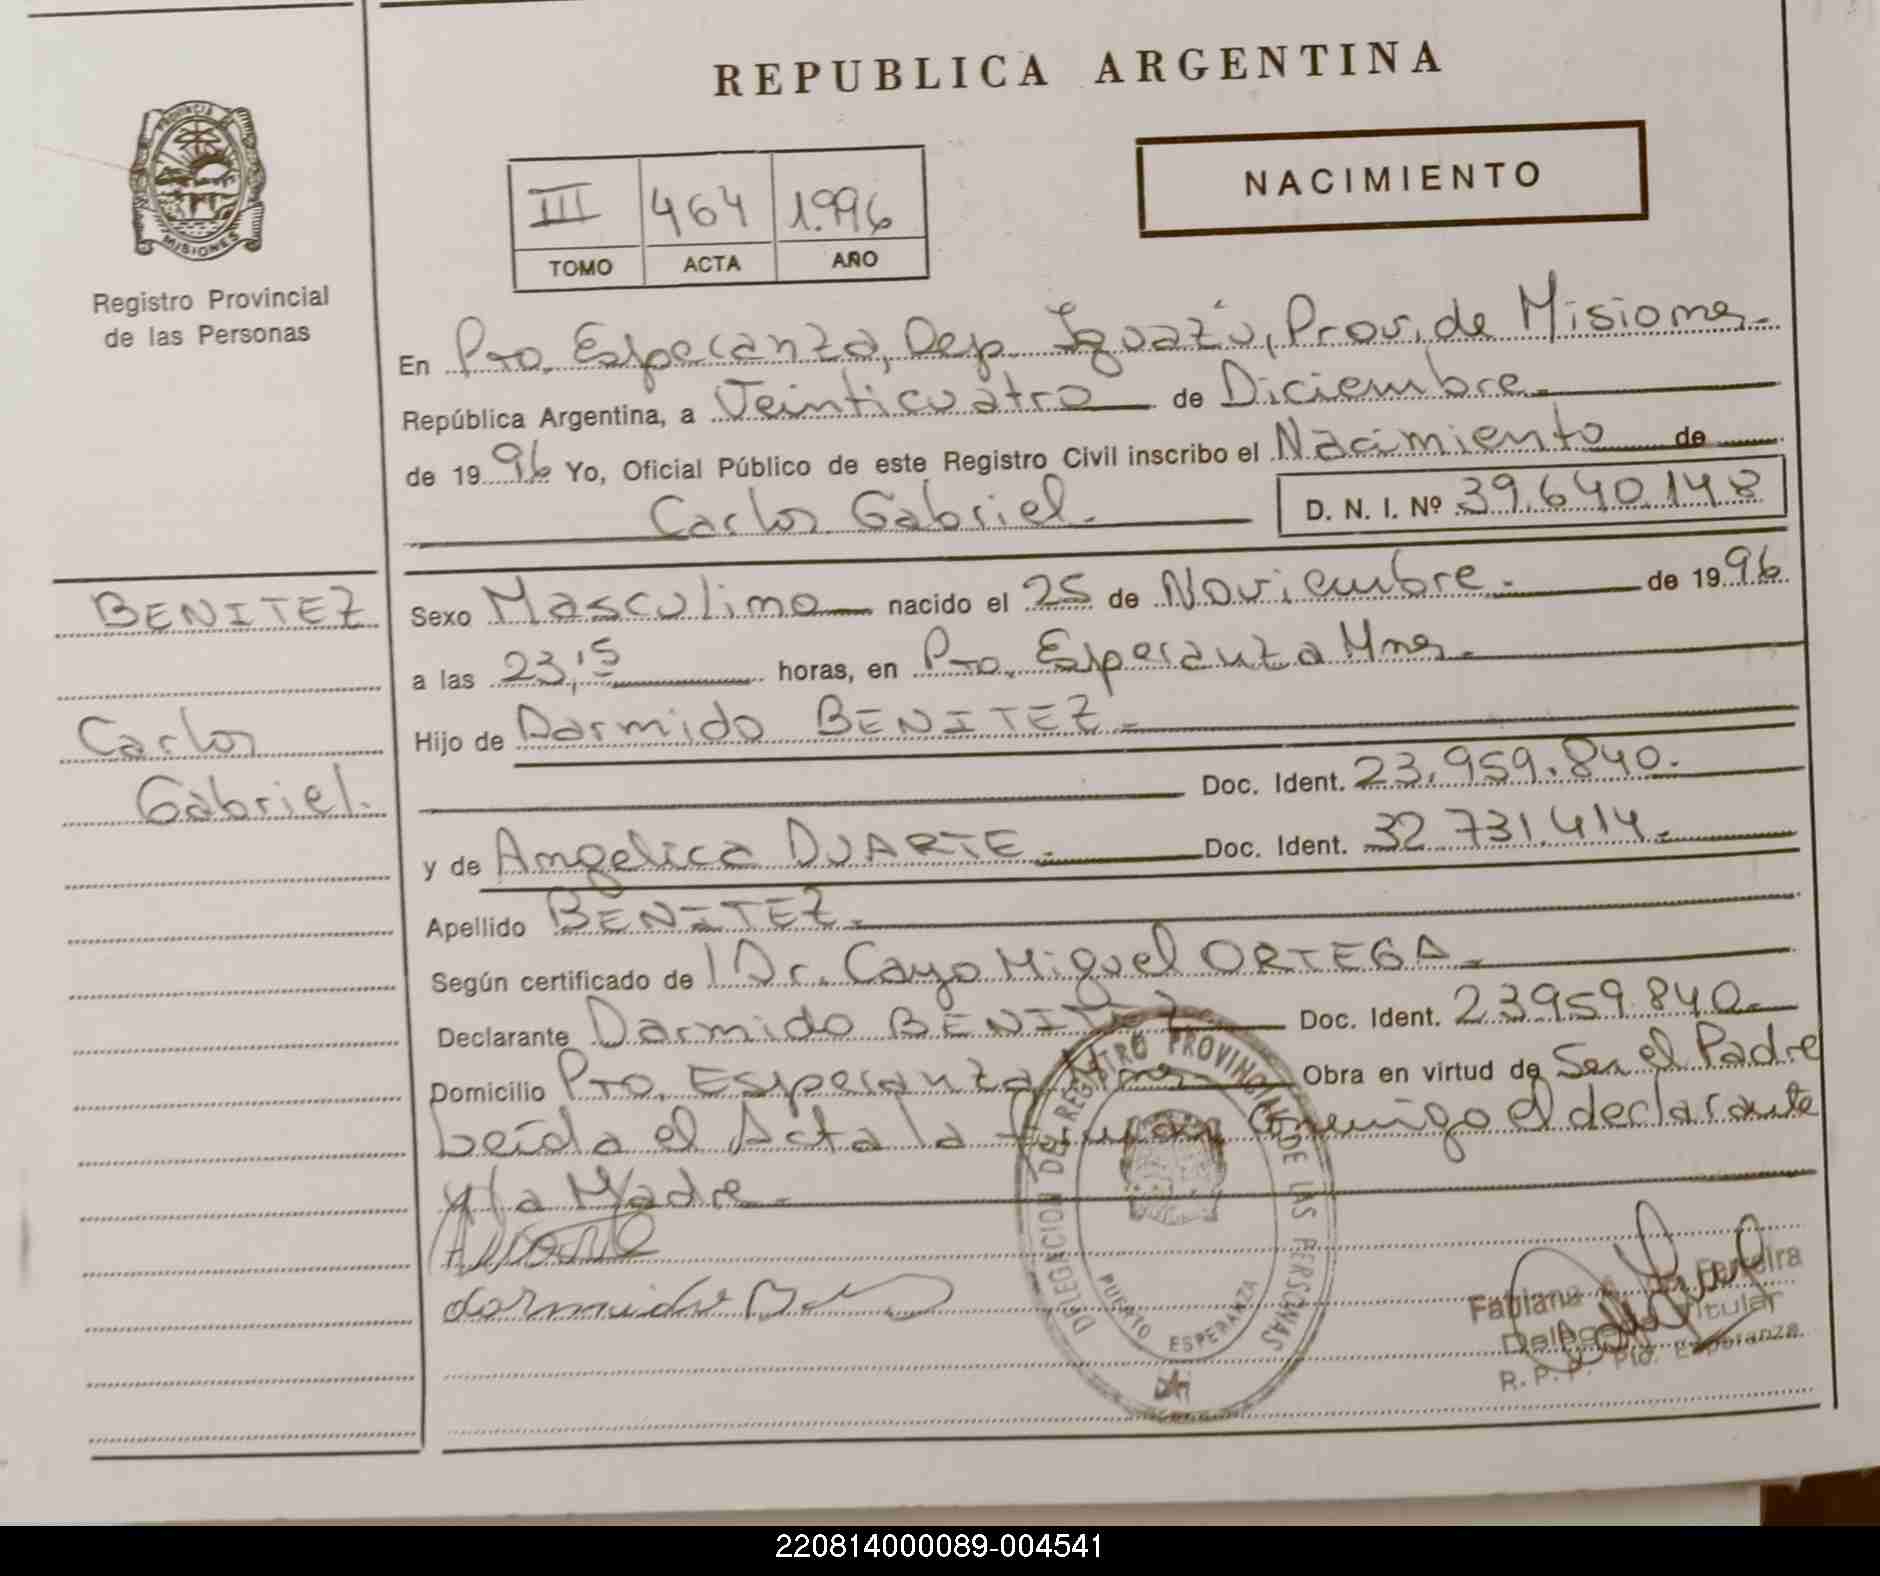 REPUBLICA ARGENTINA
PROVINCIA
MISIONES
Registro Provincial
de las Personas
NACIMIENTO
III 464 1.996
TOMO ACTA AÑO
En Pto. Esperanza, Dep. Iguazú, Prov. de Misiones.-
República Argentina, a Veinticuatro de Diciembre.-
de 1996 Yo, Oficial Público de este Registro Civil inscribo el Nacimiento de
Carlos Gabriel.- D. N. I. Nº 39.640.148
BENITEZ
Carlos
Gabriel.-
Sexo Masculino nacido el 25 de Noviembre.- de 1996
a las 23,15 horas, en Pto. Esperanza Mnes.-
Hijo de Darmido BENITEZ.-
Doc. Ident. 23.959.840.-
y de Angelica DUARTE.- Doc. Ident. 32.731.414.-
Apellido BENITEZ.-
Según certificado de l Dr. Cayo Miguel ORTEGA.-
Declarante Darmido BENITEZ Doc. Ident. 23.959.840.-
Domicilio Pto. Esperanza Mnes.- Obra en virtud de Ser el Padre
Leída el Acta la firman conmigo el declarante
y la Madre.-
DELEGACION DEL REGISTRO PROVINCIAL DE LAS PERSONAS
PUERTO ESPERANZA
Fabiana Ferreira
Titular
R. P. P. Pto. Esperanza
220814000089-004541